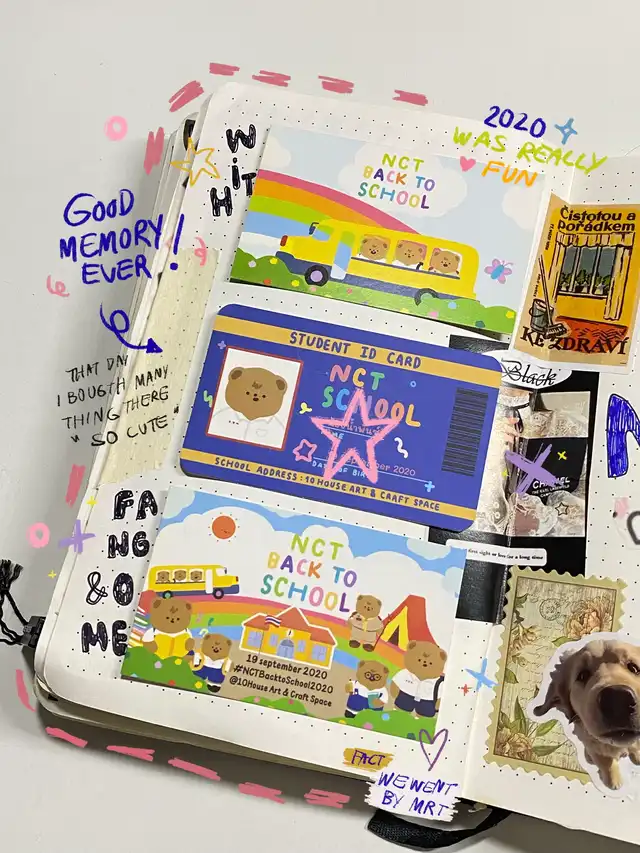 2020
WAS REALLY
FUN
GOOD
MEMORY
EVER!
THAT DAY
I BOUGTH MANY
THING THERE
"SO CUTE"
WiTH
FANG
& O
ME
NCT
BACK TO
SCHOOL
STUDENT ID CARD
NCT
SCHOOL
2020
DATE OF BIRTH
SCHOOL ADDRESS : 10 HOUSE ART & CRAFT SPACE
NCT
BACK TO
SCHOOL
19 september 2020
#NCTBacktoSchool2020
@10House Art & Craft Space
FACT
WE WENT
BY MRT
Čistotou a
pořádkem
KE ZDRAVÍ
Black
CHANEL